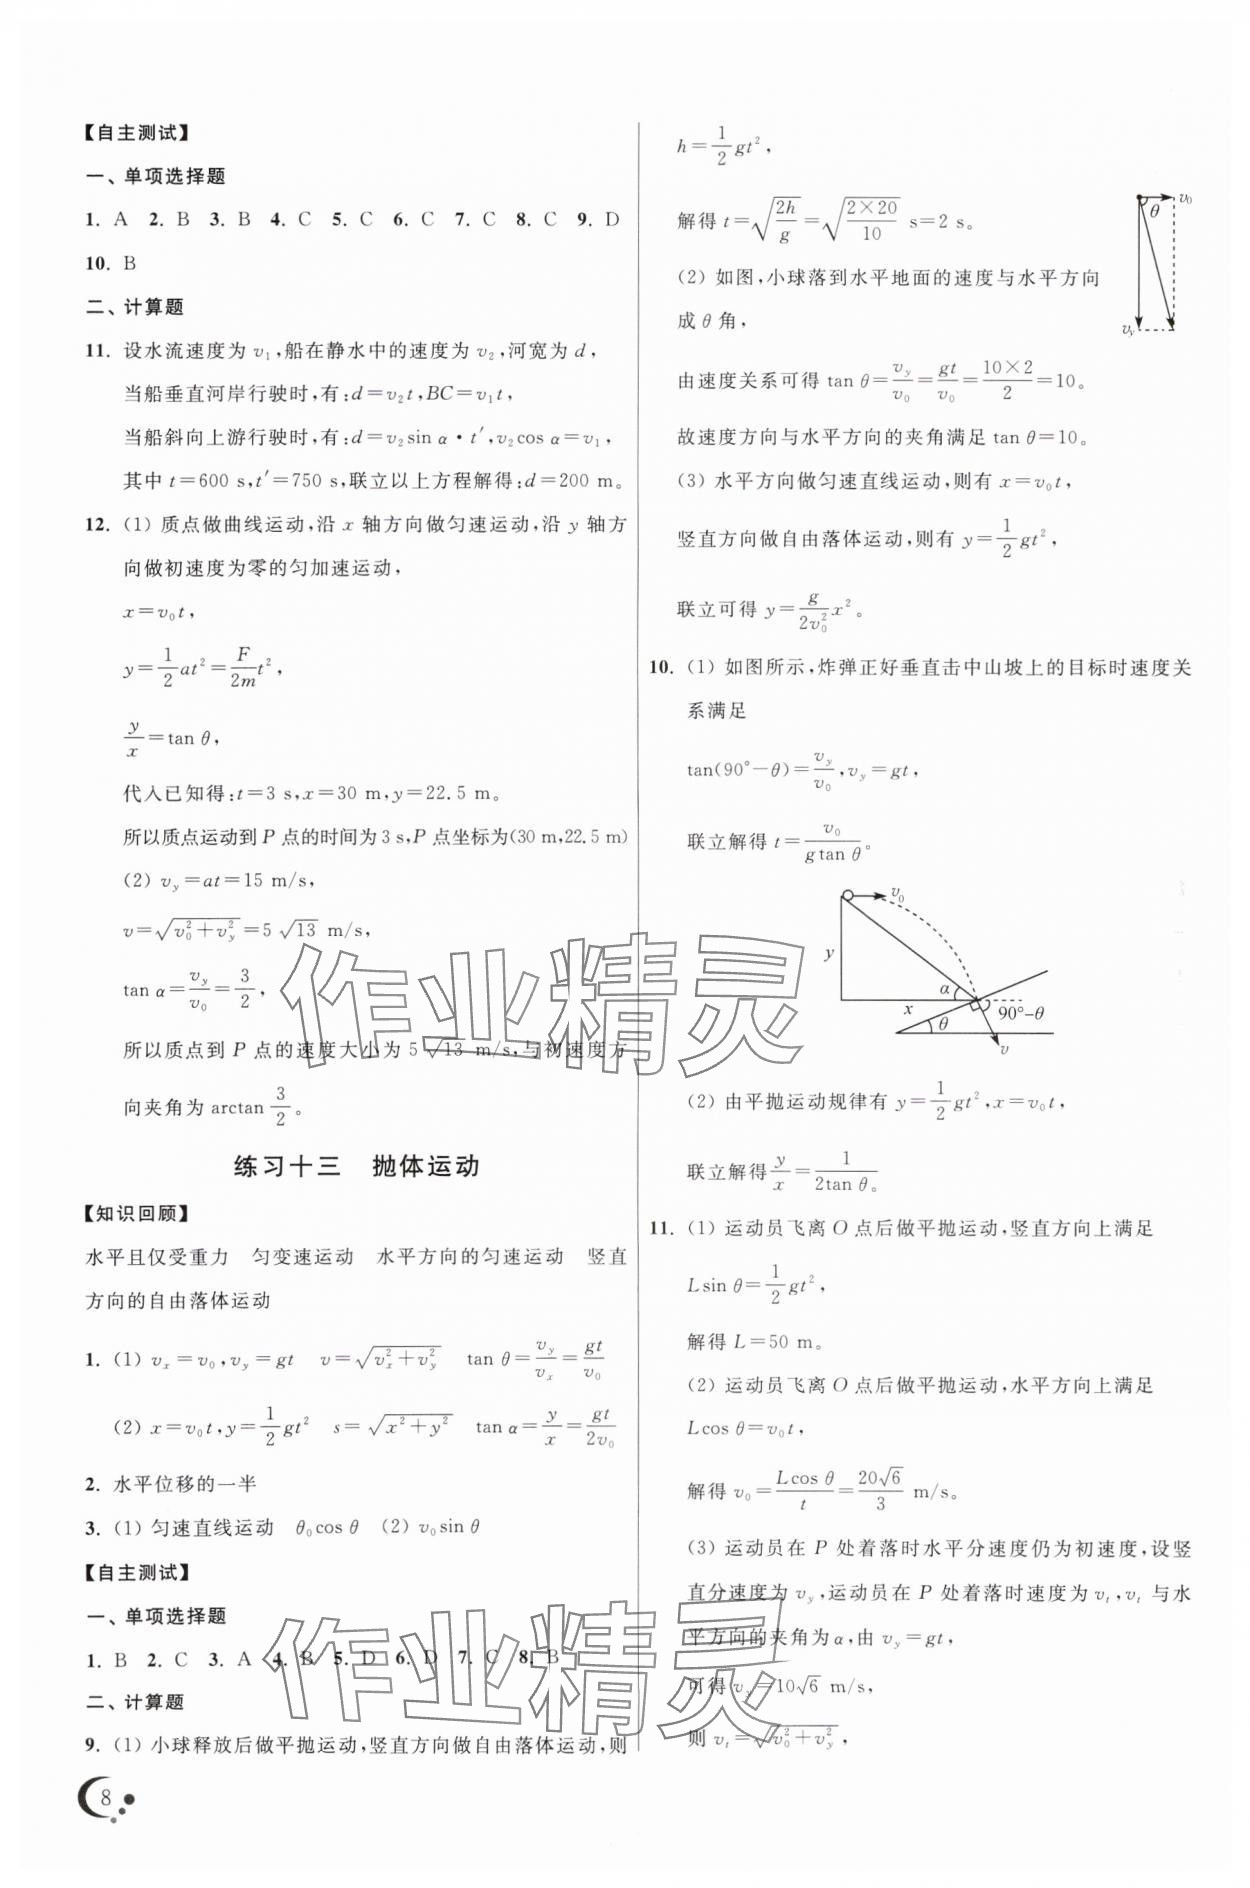 【自主测试】
一、单项选择题
1. A 2. B 3. B 4. C 5. C 6. C 7. C 8. C 9. D
10. B
二、计算题
11. 设水流速度为 v₁,船在静水中的速度为 v₂,河宽为 d,
当船垂直河岸行驶时,有:d=v₂t,BC=v₁t,
当船斜向上游行驶时,有:d=v₂sin α·t′,v₂cos α=v₁,
其中 t=600 s,t′=750 s,联立以上方程解得:d=200 m。
12. (1) 质点做曲线运动,沿 x 轴方向做匀速运动,沿 y 轴方
向做初速度为零的匀加速运动,
x=v₀t,
y=1/2 at²=F/2m t²,
y/x=tan θ,
代入已知得:t=3 s,x=30 m,y=22.5 m。
所以质点运动到 P 点的时间为 3 s,P 点坐标为(30 m,22.5 m)
(2) v_y=at=15 m/s,
v=√(v₀²+v_y²)=5√13 m/s,
tan α=v_y/v₀=3/2,
所以质点到 P 点的速度大小为 5√13 m/s,与初速度方
向夹角为 arctan 3/2。
练习十三 抛体运动
【知识回顾】
水平且仅受重力 匀变速运动 水平方向的匀速运动 竖直
方向的自由落体运动
1. (1) v_x=v₀,v_y=gt v=√(v_x²+v_y²) tan θ=v_y/v_x=gt/v₀
(2) x=v₀t,y=1/2 gt² s=√(x²+y²) tan α=y/x=gt/2v₀
2. 水平位移的一半
3. (1) 匀速直线运动 θ₀cos θ (2) v₀sin θ
【自主测试】
一、单项选择题
1. B 2. C 3. A 4. B 5. D 6. D 7. C 8. B
二、计算题
9. (1) 小球释放后做平抛运动,竖直方向做自由落体运动,则
8
h=1/2 gt²,
解得 t=√(2h/g)=√(2×20/10) s=2 s。
(2) 如图,小球落到水平地面的速度与水平方向
成 θ 角,
v₀
θ
v_y
由速度关系可得 tan θ=v_y/v₀=gt/v₀=10×2/2=10。
故速度方向与水平方向的夹角满足 tan θ=10。
(3) 水平方向做匀速直线运动,则有 x=v₀t,
竖直方向做自由落体运动,则有 y=1/2 gt²,
联立可得 y=g/2v₀² x²。
10. (1) 如图所示,炸弹正好垂直击中山坡上的目标时速度关
系满足
tan(90°−θ)=v_y/v₀,v_y=gt,
联立解得 t=v₀/gtan θ。
v₀
y
α
x
θ
90°−θ
v
(2) 由平抛运动规律有 y=1/2 gt²,x=v₀t,
联立解得 y/x=1/2tan θ。
11. (1) 运动员飞离 O 点后做平抛运动,竖直方向上满足
Lsin θ=1/2 gt²,
解得 L=50 m。
(2) 运动员飞离 O 点后做平抛运动,水平方向上满足
Lcos θ=v₀t,
解得 v₀=Lcos θ/t=20√6/3 m/s。
(3) 运动员在 P 处着落时水平分速度仍为初速度,设竖
直分速度为 v_y,运动员在 P 处着落时速度为 v_t,v_t 与水
平方向的夹角为 α,由 v_y=gt,
可得 v_y=10√6 m/s,
则 v_t=√(v₀²+v_y²),
作业精灵
作业精灵